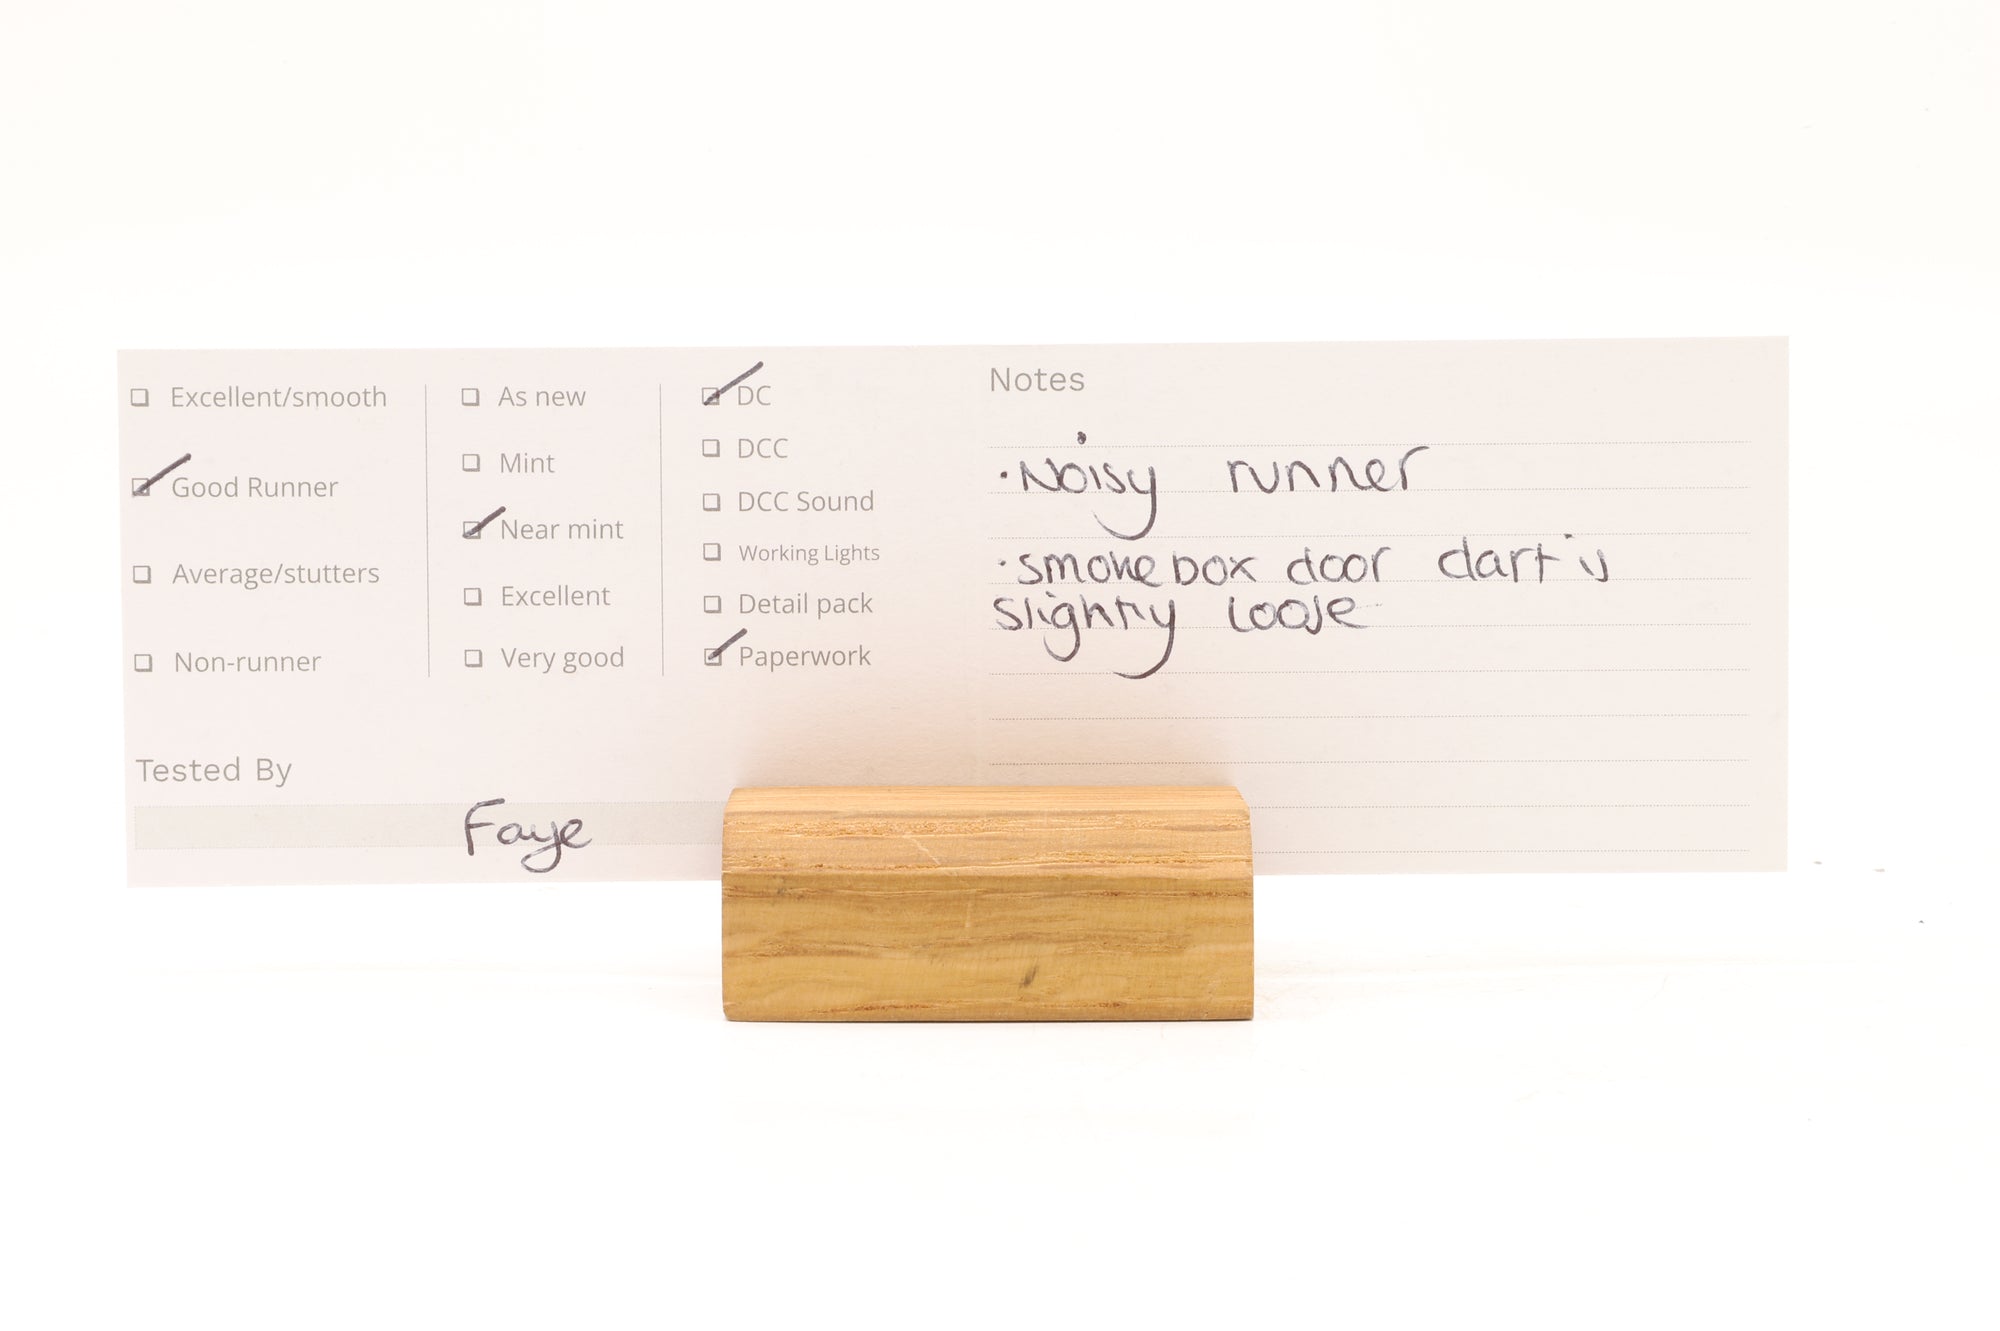 Excellent/smooth
Good Runner
Average/stutters
Non-runner
As new
Mint
Near mint
Excellent
Very good
DC
DCC
DCC Sound
Working Lights
Detail pack
Paperwork
Tested By
Faye
Notes
·Noisy runner
·smokebox door dart is
slightly loose